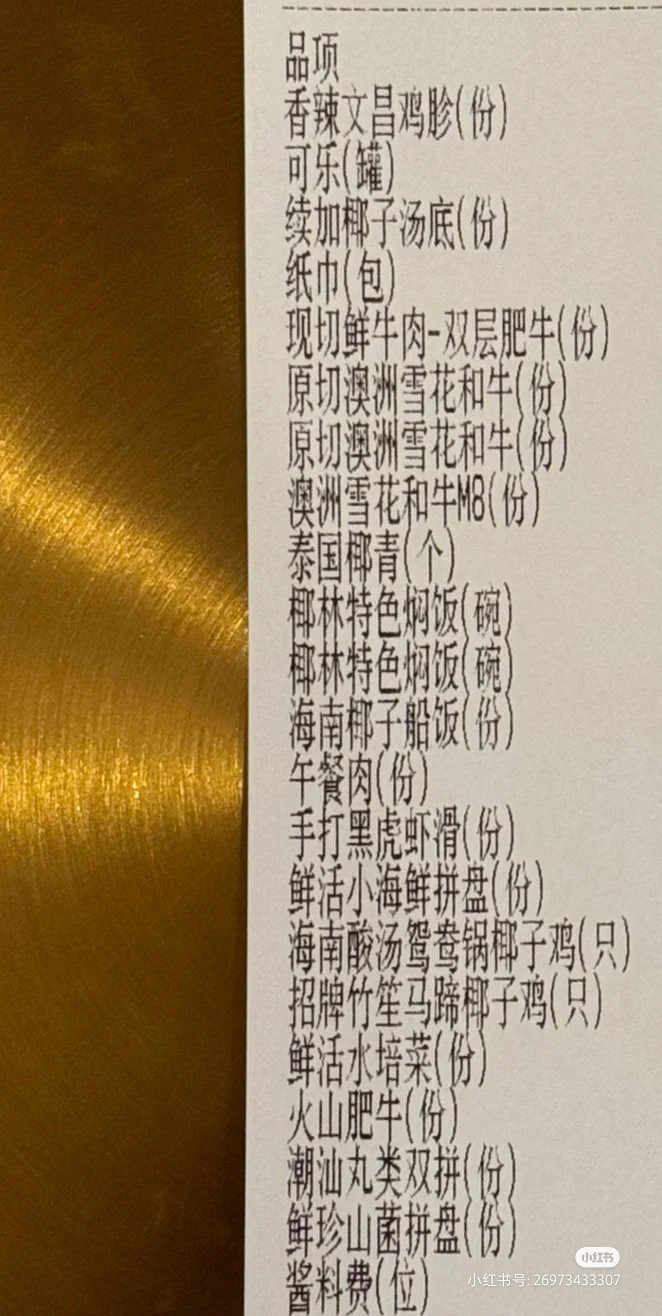 品项
香辣文昌鸡胗(份)
可乐(罐)
续加椰子汤底(份)
纸巾(包)
现切鲜牛肉-双层肥牛(份)
原切澳洲雪花和牛(份)
原切澳洲雪花和牛(份)
澳洲雪花和牛M8(份)
泰国椰青(个)
椰林特色焖饭(碗)
椰林特色焖饭(碗)
海南椰子船饭(份)
午餐肉(份)
手打黑虎虾滑(份)
鲜活小海鲜拼盘(份)
海南酸汤鸳鸯锅椰子鸡(只)
招牌竹笙马蹄椰子鸡(只)
鲜活水培菜(份)
火山肥牛(份)
潮汕丸类双拼(份)
鲜珍山菌拼盘(份)
酱料费(位)
小红书
小红书号: 26973433307